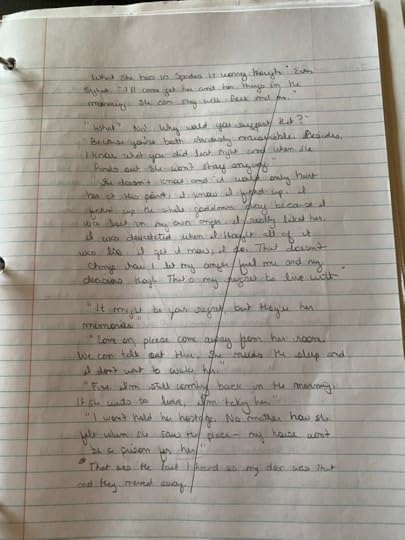 What she has in Spades is worry though." Evan
sighed. "I'll come get her and her things in the
morning. She can stay with Beck and me."
"What? No! Why would you suggest that?"
"Because you're both obviously miserable. Besides,
I know what you did last night and when she
finds out she won't stay anyway."
"She doesn't know and it would only hurt
her at this point. I know I f'd up. I
up the whole goddamn because I
was lost in my own anger. I really liked her.
I was devastated when I thought all of it
was lies. I get it now, I do. That doesn't
change how I let my anger fuel me and my
decisions though. That's my regret to live with—"
"It might be your regret but they're her
memories."
"Come on, please come away from her room.
We can talk out there. She needs the sleep and
I don't want to wake her."
"Fine. I'm still coming back in the morning.
If she wants to leave, I'm taking her."
"I won't hold her hostage. No matter how she
felt when she saw the place— my house won't
be a prison for her."
That was the last I heard as my door was shut
and they moved away.